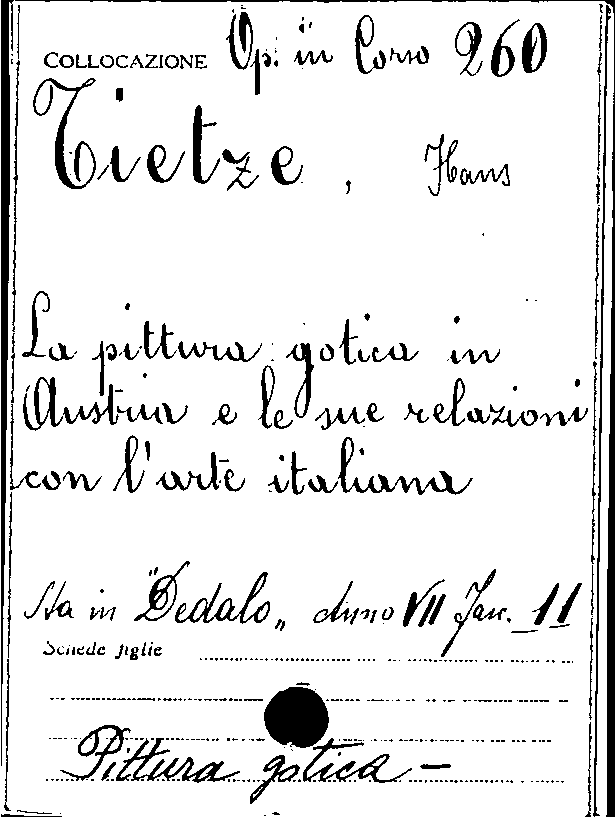 COLLOCAZIONE Op. in Corso 260
Tietze, Hans
La pittura gotica in
Austria e le sue relazioni
con l'arte italiana
Sta in "Dedalo" Anno VII Fasc. 11
Schede figlie
Pittura gotica -